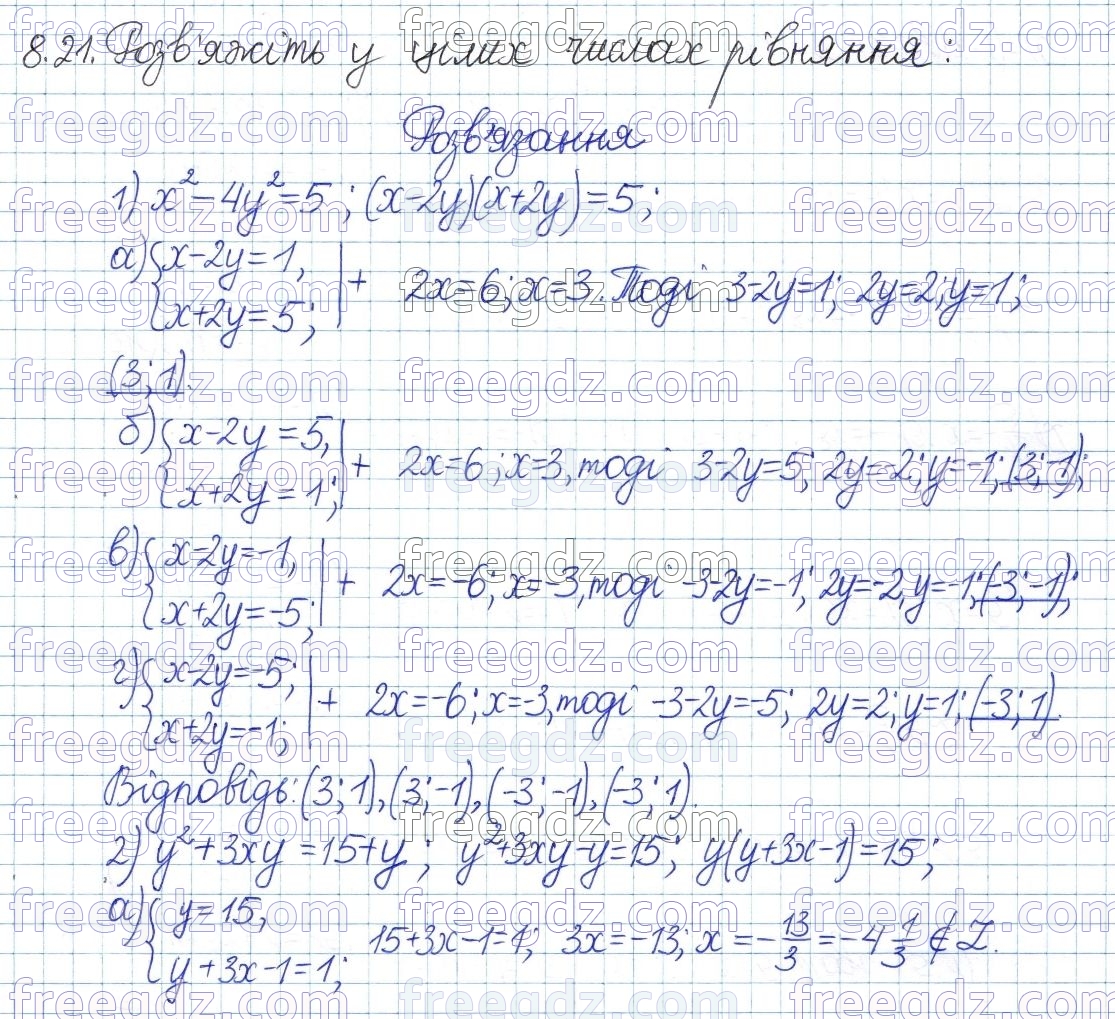 8.21. Розв'яжіть у цілих числах рівняння:
Розв'язання
1) x² - 4y² = 5; (x-2y)(x+2y) = 5;
а) { x-2y = 1,
x+2y = 5; | + 2x = 6; x = 3. Тоді 3-2y = 1; 2y = 2; y = 1;
(3; 1).
б) { x-2y = 5,
x+2y = 1; | + 2x = 6; x = 3, тоді 3-2y = 5; 2y = -2; y = -1; (3; -1);
в) { x-2y = -1,
x+2y = -5; | + 2x = -6; x = -3, тоді -3-2y = -1; 2y = -2, y = -1; (-3; -1);
г) { x-2y = -5;
x+2y = -1; | + 2x = -6; x = -3, тоді -3-2y = -5; 2y = 2; y = 1; (-3; 1).
Відповідь: (3; 1), (3; -1), (-3; -1), (-3; 1).
2) y² + 3xy = 15 + y; y² + 3xy - y = 15; y(y+3x-1) = 15;
а) { y = 15,
y + 3x - 1 = 1; 15+3x-1 = 1; 3x = -13; x = -13/3 = -4 1/3 ∉ Z.
freegdz.com